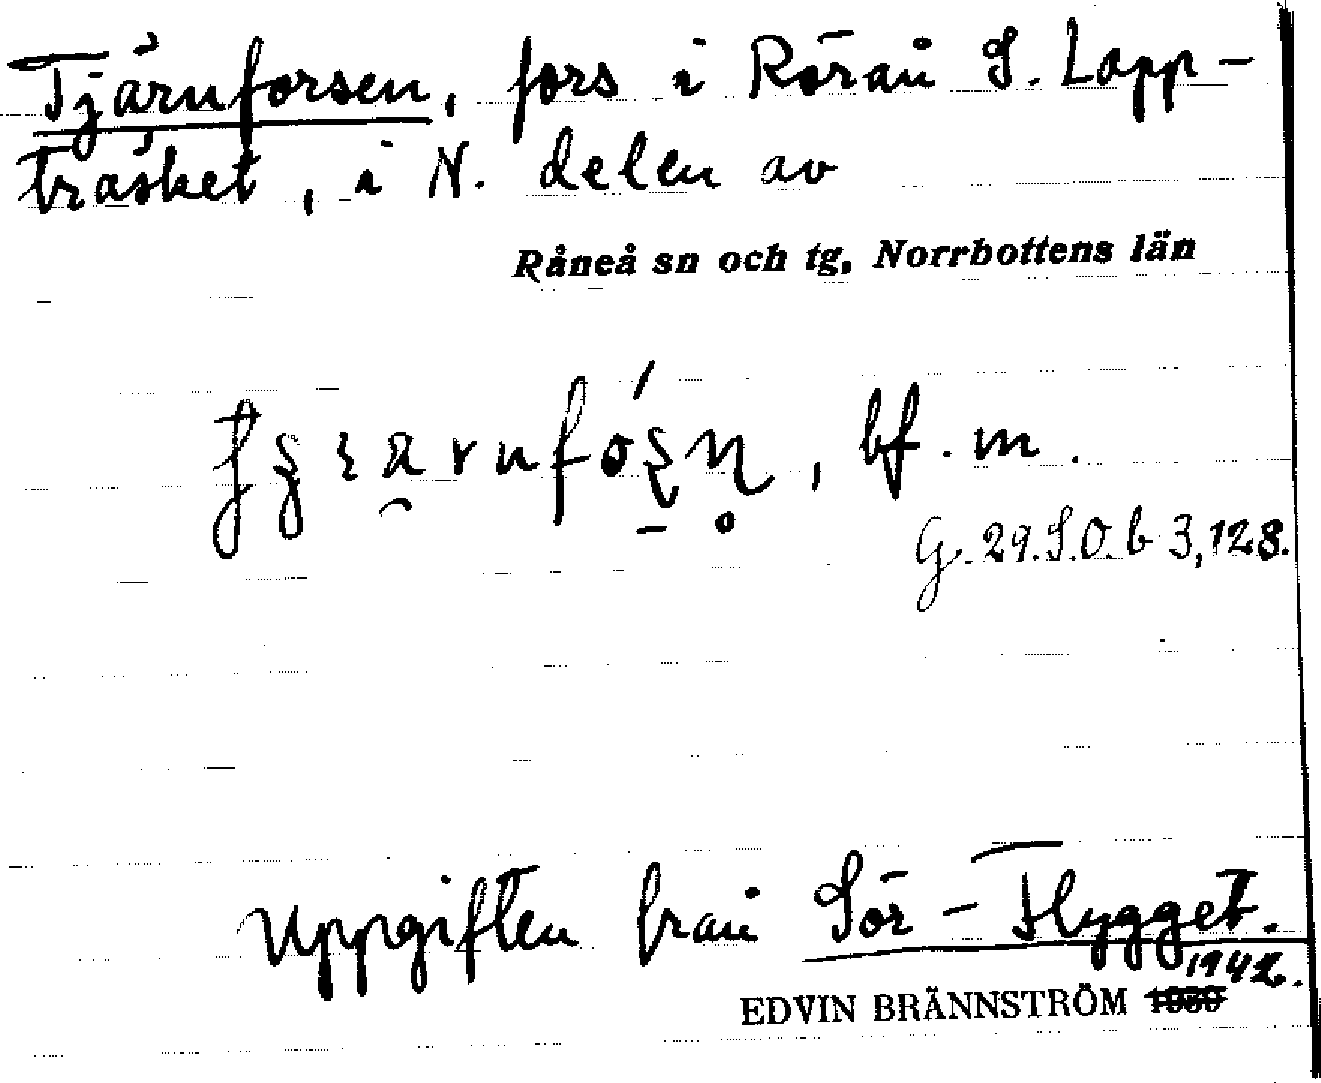 Tjärnforsen, fors i Rörån S. Lapp-
träsket, i N. delen av
Råneå sn och tg, Norrbottens län
bf. m.
G. 29. S.O. b 3,128.
Uppgiften från Sör-Flygget.
1942.
EDVIN BRÄNNSTRÖM 1930